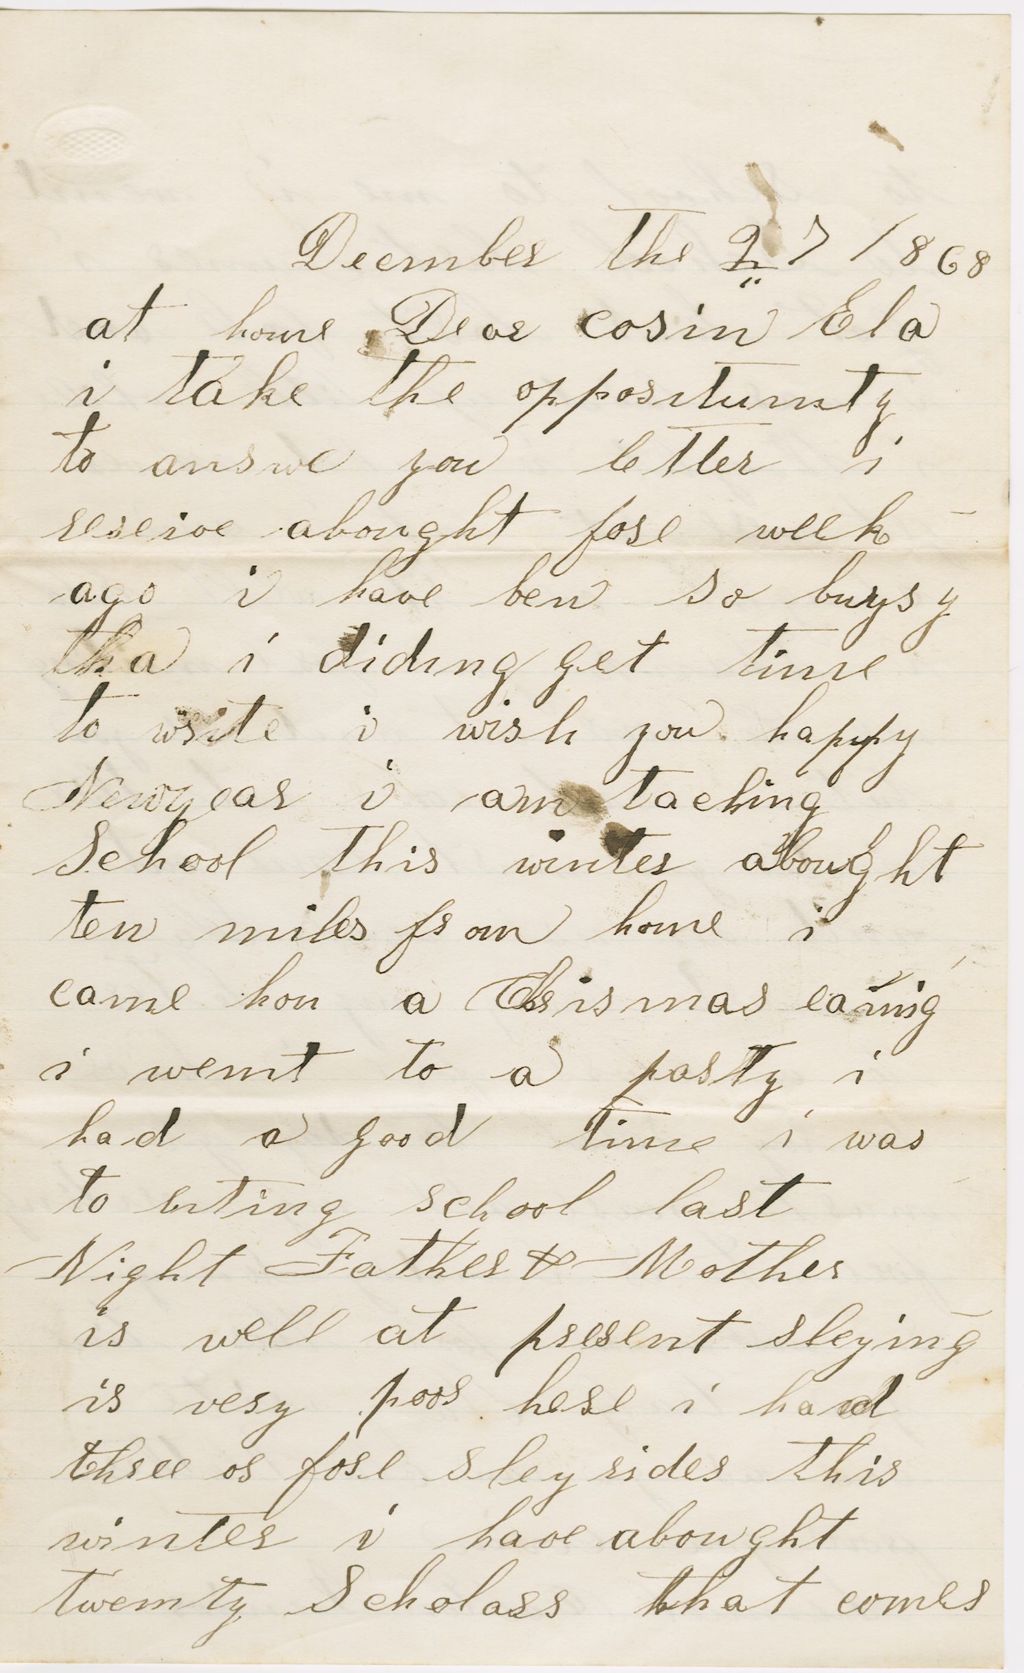 December the 27 1868
at home Dear cosin Ela
i take the opporitunity
to answe you letter i
reseive abought fore week
ago i have ben so buysy
tha i diding get time
to write i wish you happy
Newyear i am taching
School this winter abought
ten miles from home i
came hom a Chrismas eaning
i wemt to a party i
had a good time i was
to school last
Night Father & Mother
is well at present sleying
is very poor here i had
three or fore sley rides this
winter i have abought
twemty Scholars that comes